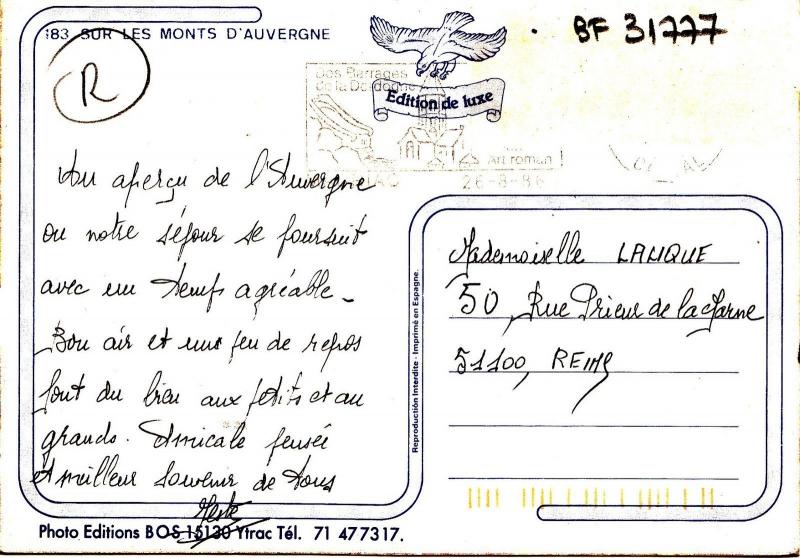 183 SUR LES MONTS D'AUVERGNE
BF 31777
R
des Barrages
de la Dordogne
Edition de luxe
Art roman
26-8-86
Un aperçu de l'Auvergne
ou notre séjour se poursuit
avec un temps agréable -
Bon air et un peu de repos
font du bien aux petits et au
grands. Amicale pensée
et meilleur souvenir de tous
Mademoiselle LANIQUE
50, Rue Prieur de la Marne
51100, REIMS
Reproduction Interdite - Imprimé en Espagne.
Photo Editions BOS 15130 Ytrac Tél. 71 477317.